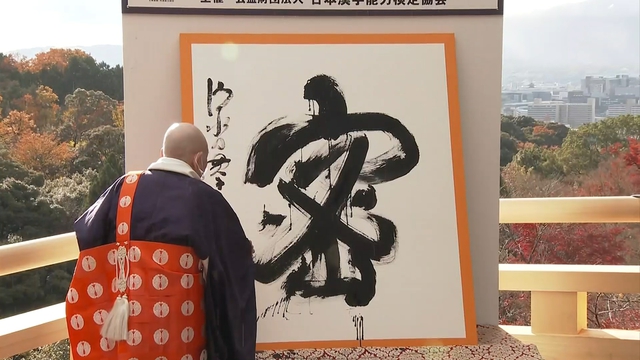 主催 公益財団法人 日本漢字能力検定協会
密